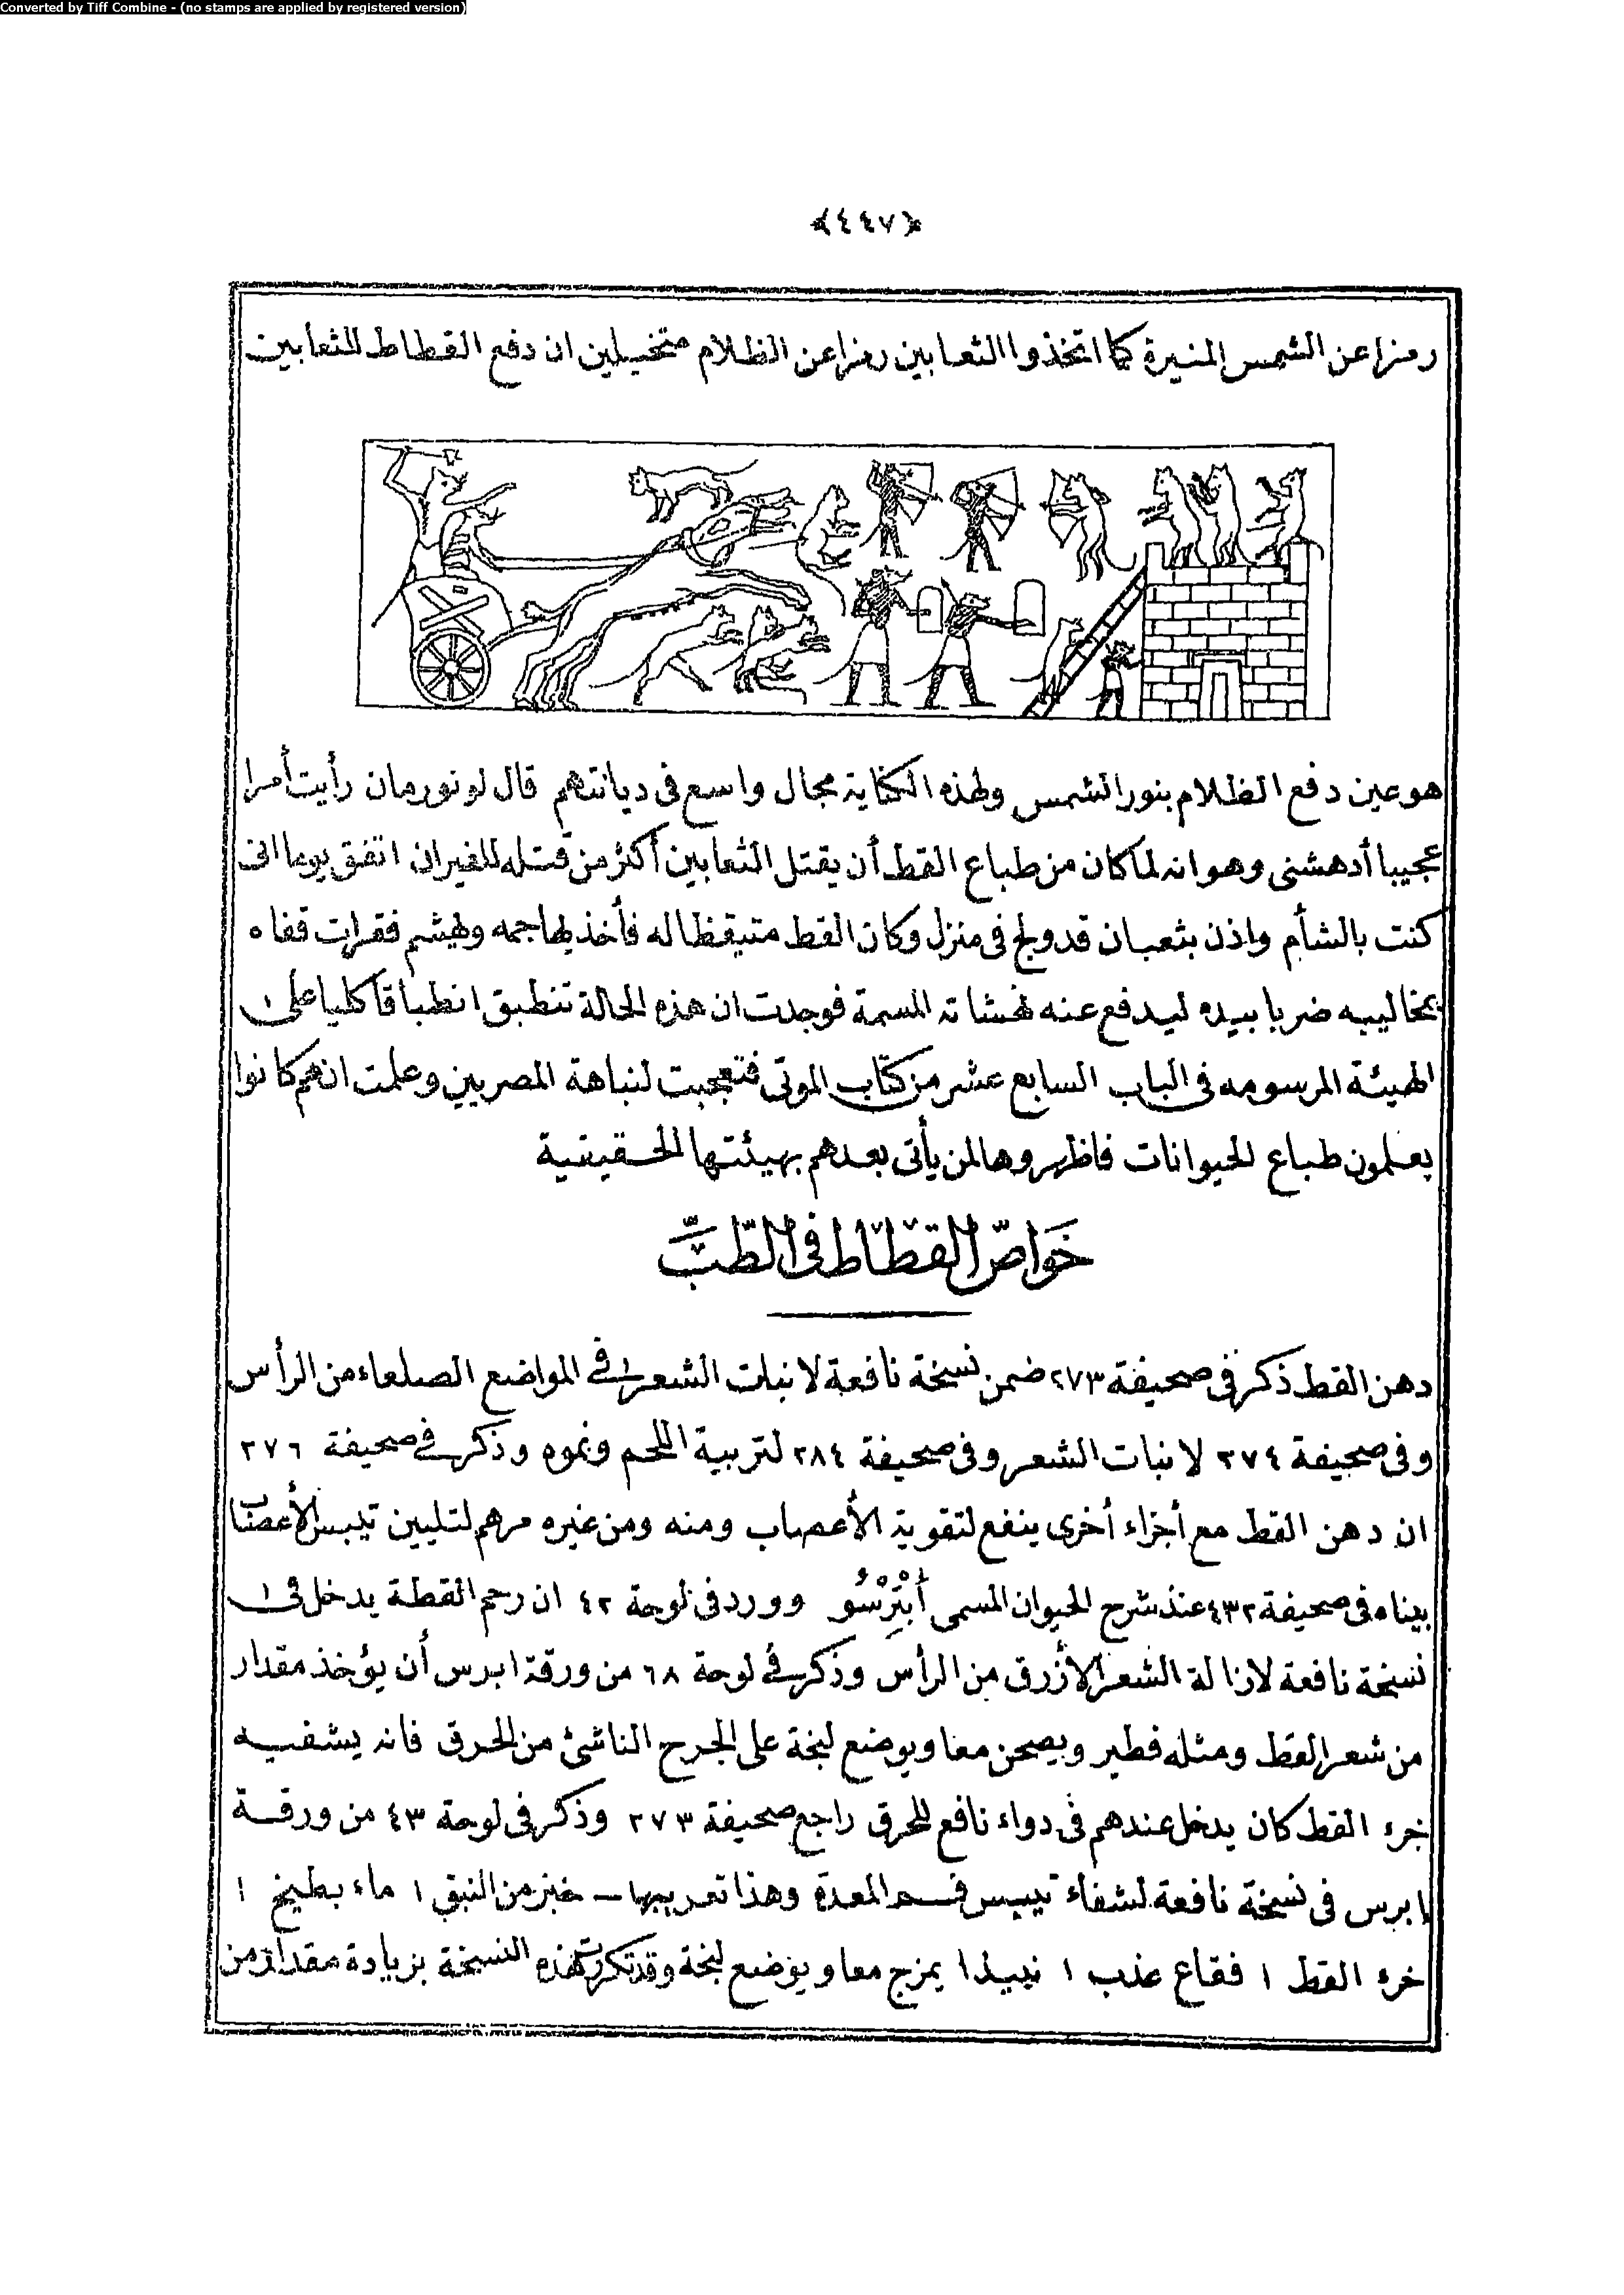 Converted by Tiff Combine - (no stamps are applied by registered version)
﴿٤٤٧﴾
رمزا عن الشمس المنيرة كما اتخذوا الثعابين رمزا عن الظلام متخيلين ان دفع القطاط للثعابين
هو عين دفع الظلام بنور الشمس ولهذه الكناية مجال واسع فى ديانتهم قال لونورمان رأيت أمرا
عجيبا أدهشنى وهو انه لما كان من طباع القط أن يقتل الثعابين أكثر من قتله للفيران اتفق يوما انى
كنت بالشأم واذن بثعبان قد ولج فى منزل وكان القط متيقظا له فأخذ يهاجمه ويهشم فقرات قفاه
بمخاليبه ضربا بيده ليدفع عنه نهشاته المسمة فوجدت ان هذه الحالة تنطبق انطباقا كليا على
الهيئة المرسومه فى الباب السابع عشر من كتاب الموتى فتعجبت لنباهة المصريين وعلمت انهم كانوا
يعلمون طباع الحيوانات فاظهروها لمن يأتى بعدهم بهيئتها الحقيقية
خَوَاصّ القطاط فى الطّبّ
دهن القط ذكر فى صحيفة ٢٧٣ ضمن نسخة نافعة لانبات الشعر فى المواضع الصلعاء من الرأس
وفى صحيفة ٢٧٤ لانبات الشعر وفى صحيفة ٢٨٤ لتربية اللحم ونموه وذكر فى صحيفة ٢٧٦
ان دهن القط مع أجزاء أخرى ينفع لتقوية الأعصاب ومنه ومن غيره مرهم لتليين تيبس الأعصاب
بيناه فى صحيفة ٤٣٢ عند شرح الحيوان المسمى أَبْتِرْسُو وورد فى لوحة ٤٢ ان رحم القطة يدخل فى
نسخة نافعة لازالة الشعر الأزرق من الرأس وذكر فى لوحة ٦٨ من ورقة ابرس أن يؤخذ مقدار
من شعر القط ومثله فطير ويصحن معا ويوضع لبخة على الجرح الناشئ من الحرق فانه يشفيه
خرء القط كان يدخل عندهم فى دواء نافع للحرق راجع صحيفة ٢٧٣ وذكر فى لوحة ٤٣ من ورقة
ابرس فى نسخة نافعة لشفاء تيبس فم المعدة وهذا تعريبها – خبز من النبق ١ ماء بطيخ ١
خرء القط ١ فقاع عذب ١ نبيذ ١ يمزج معا ويوضع لبخة وقد تكررت هذه النسخة بزيادة مقدار من